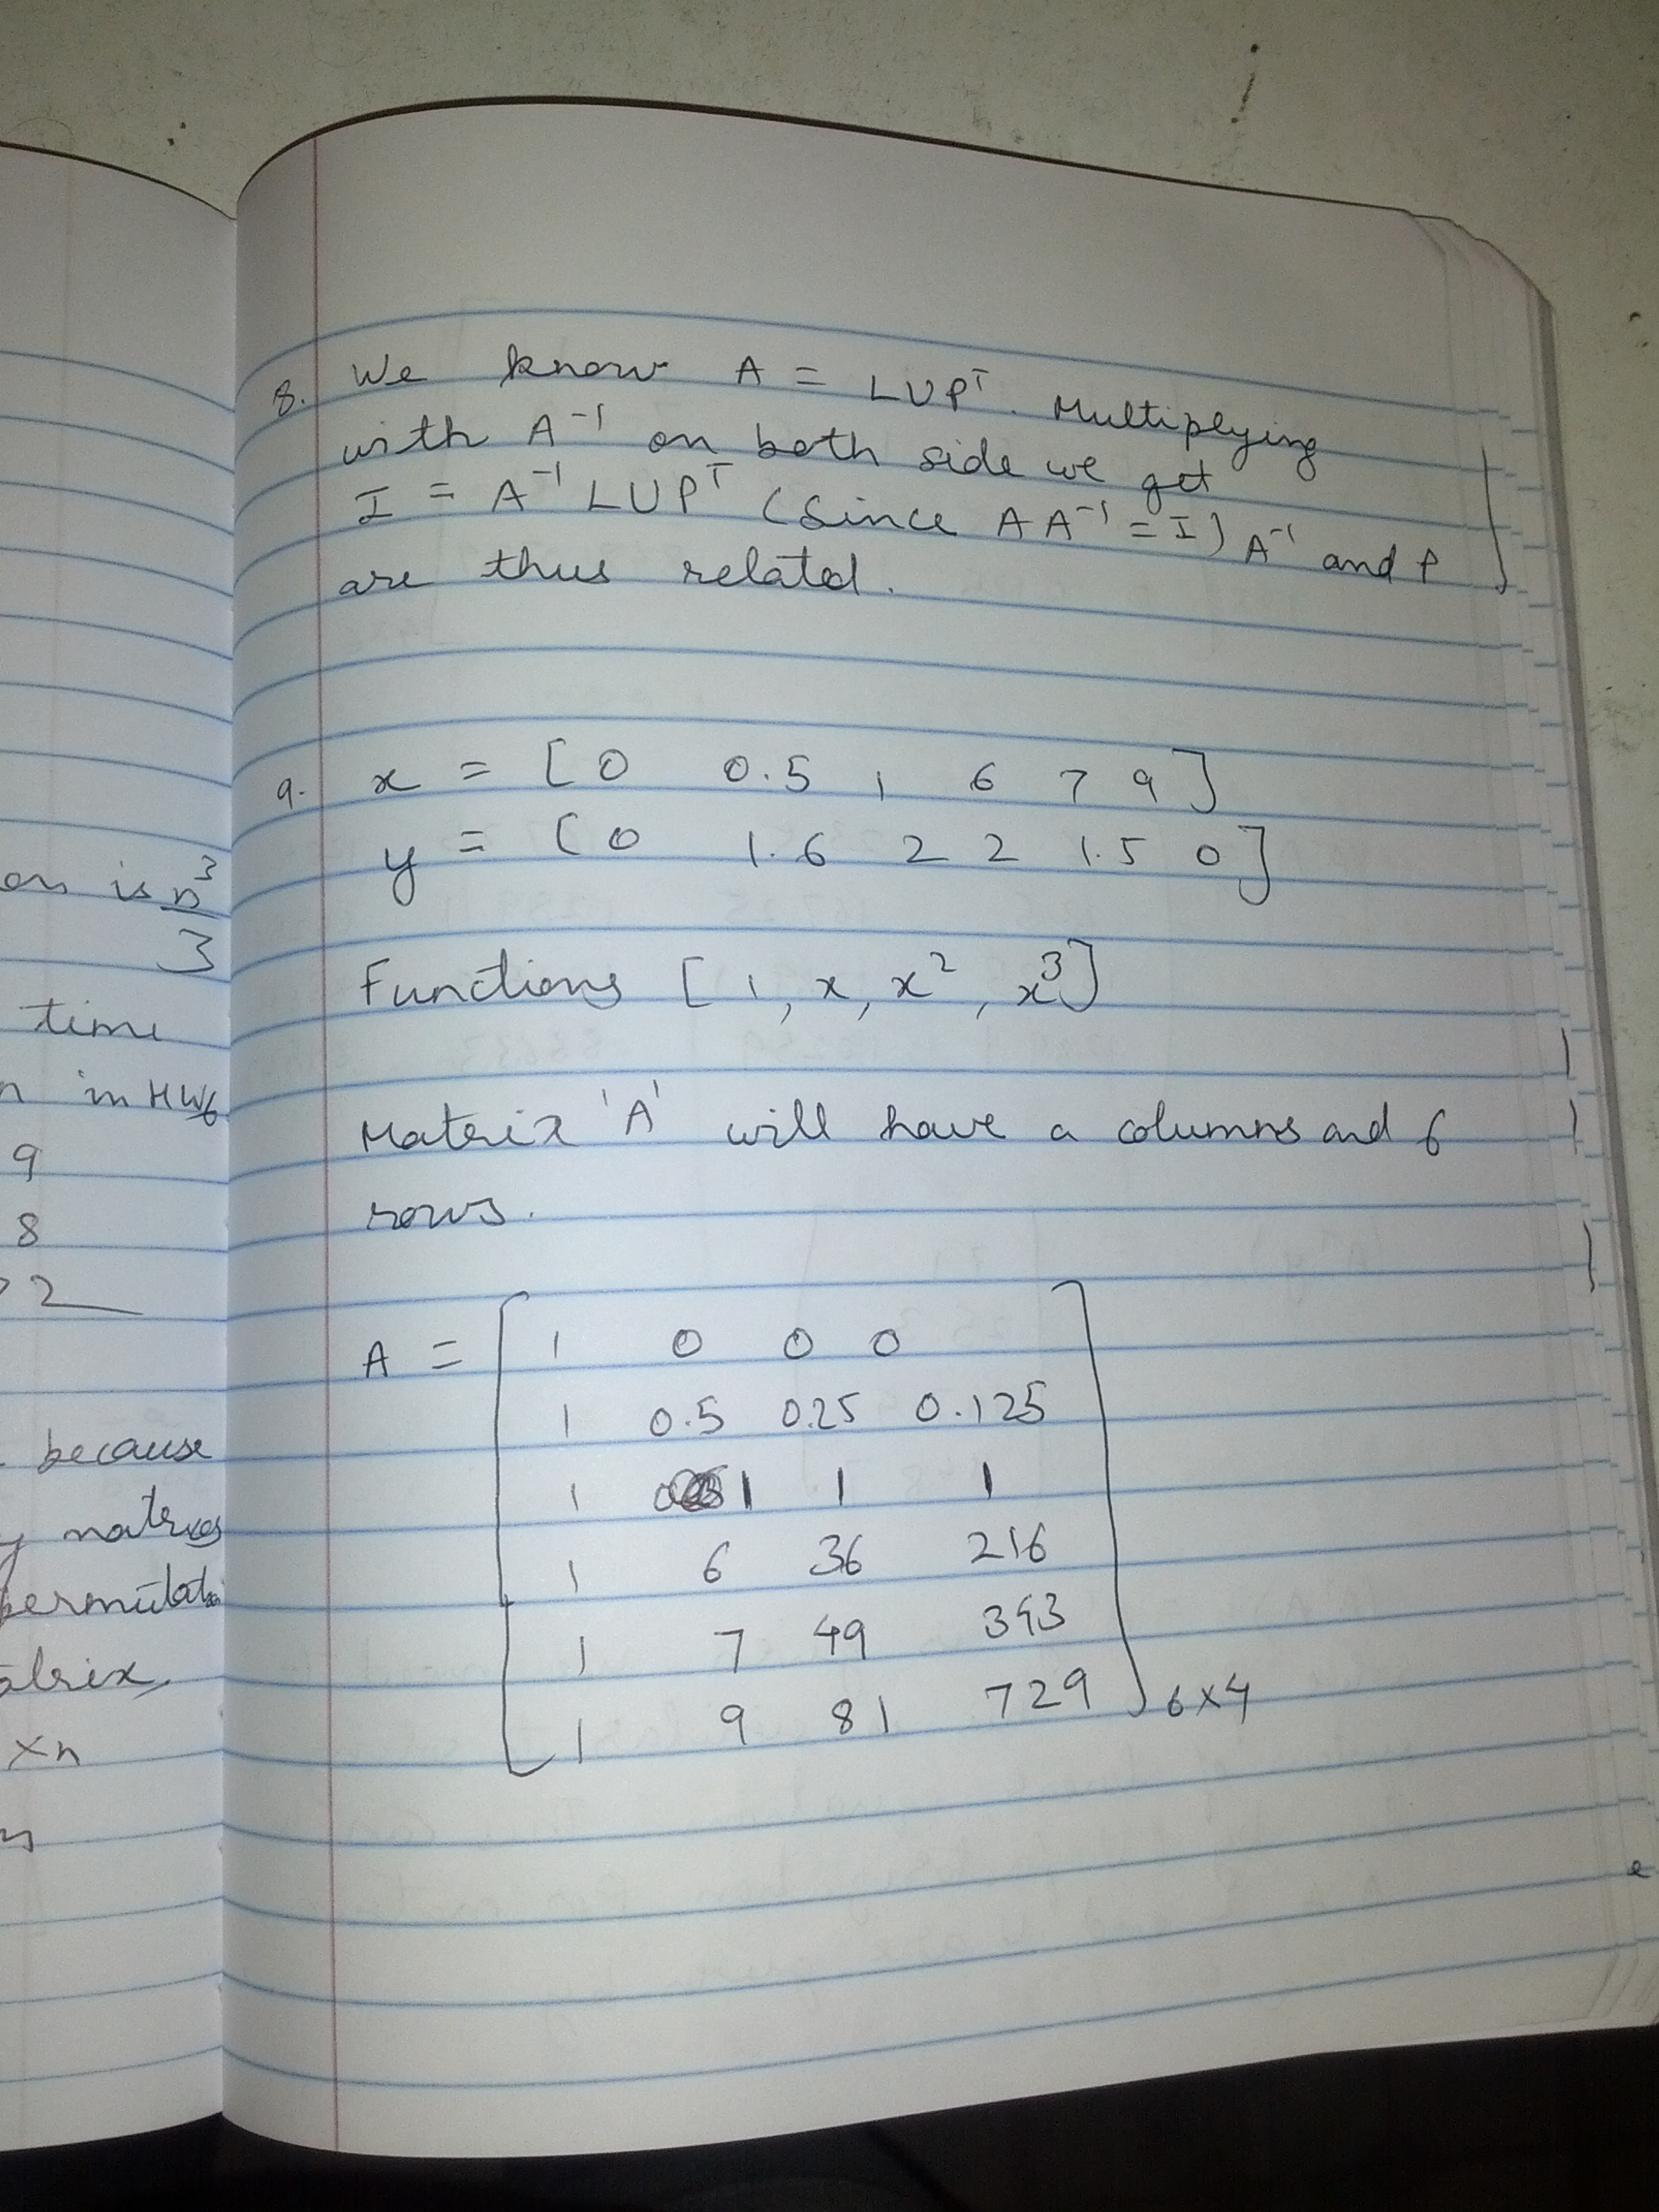 on is n³
3
time
in HW6
9
8
2
because
matrices
xn
8. We know A = LUPᵀ. Multiplying
with A⁻¹ on both side we get
I = A⁻¹ LUPᵀ (Since AA⁻¹ = I) A⁻¹ and P
are thus related.
9. x = [0 0.5 1 6 7 9]
y = [0 1.6 2 2 1.5 0]
Functions [1, x, x², x³]
Matrix 'A' will have a columns and 6
rows.
A = [ 1 0 0 0
1 0.5 0.25 0.125
1 1 1 1
1 6 36 216
1 7 49 343
1 9 81 729 ] 6x4